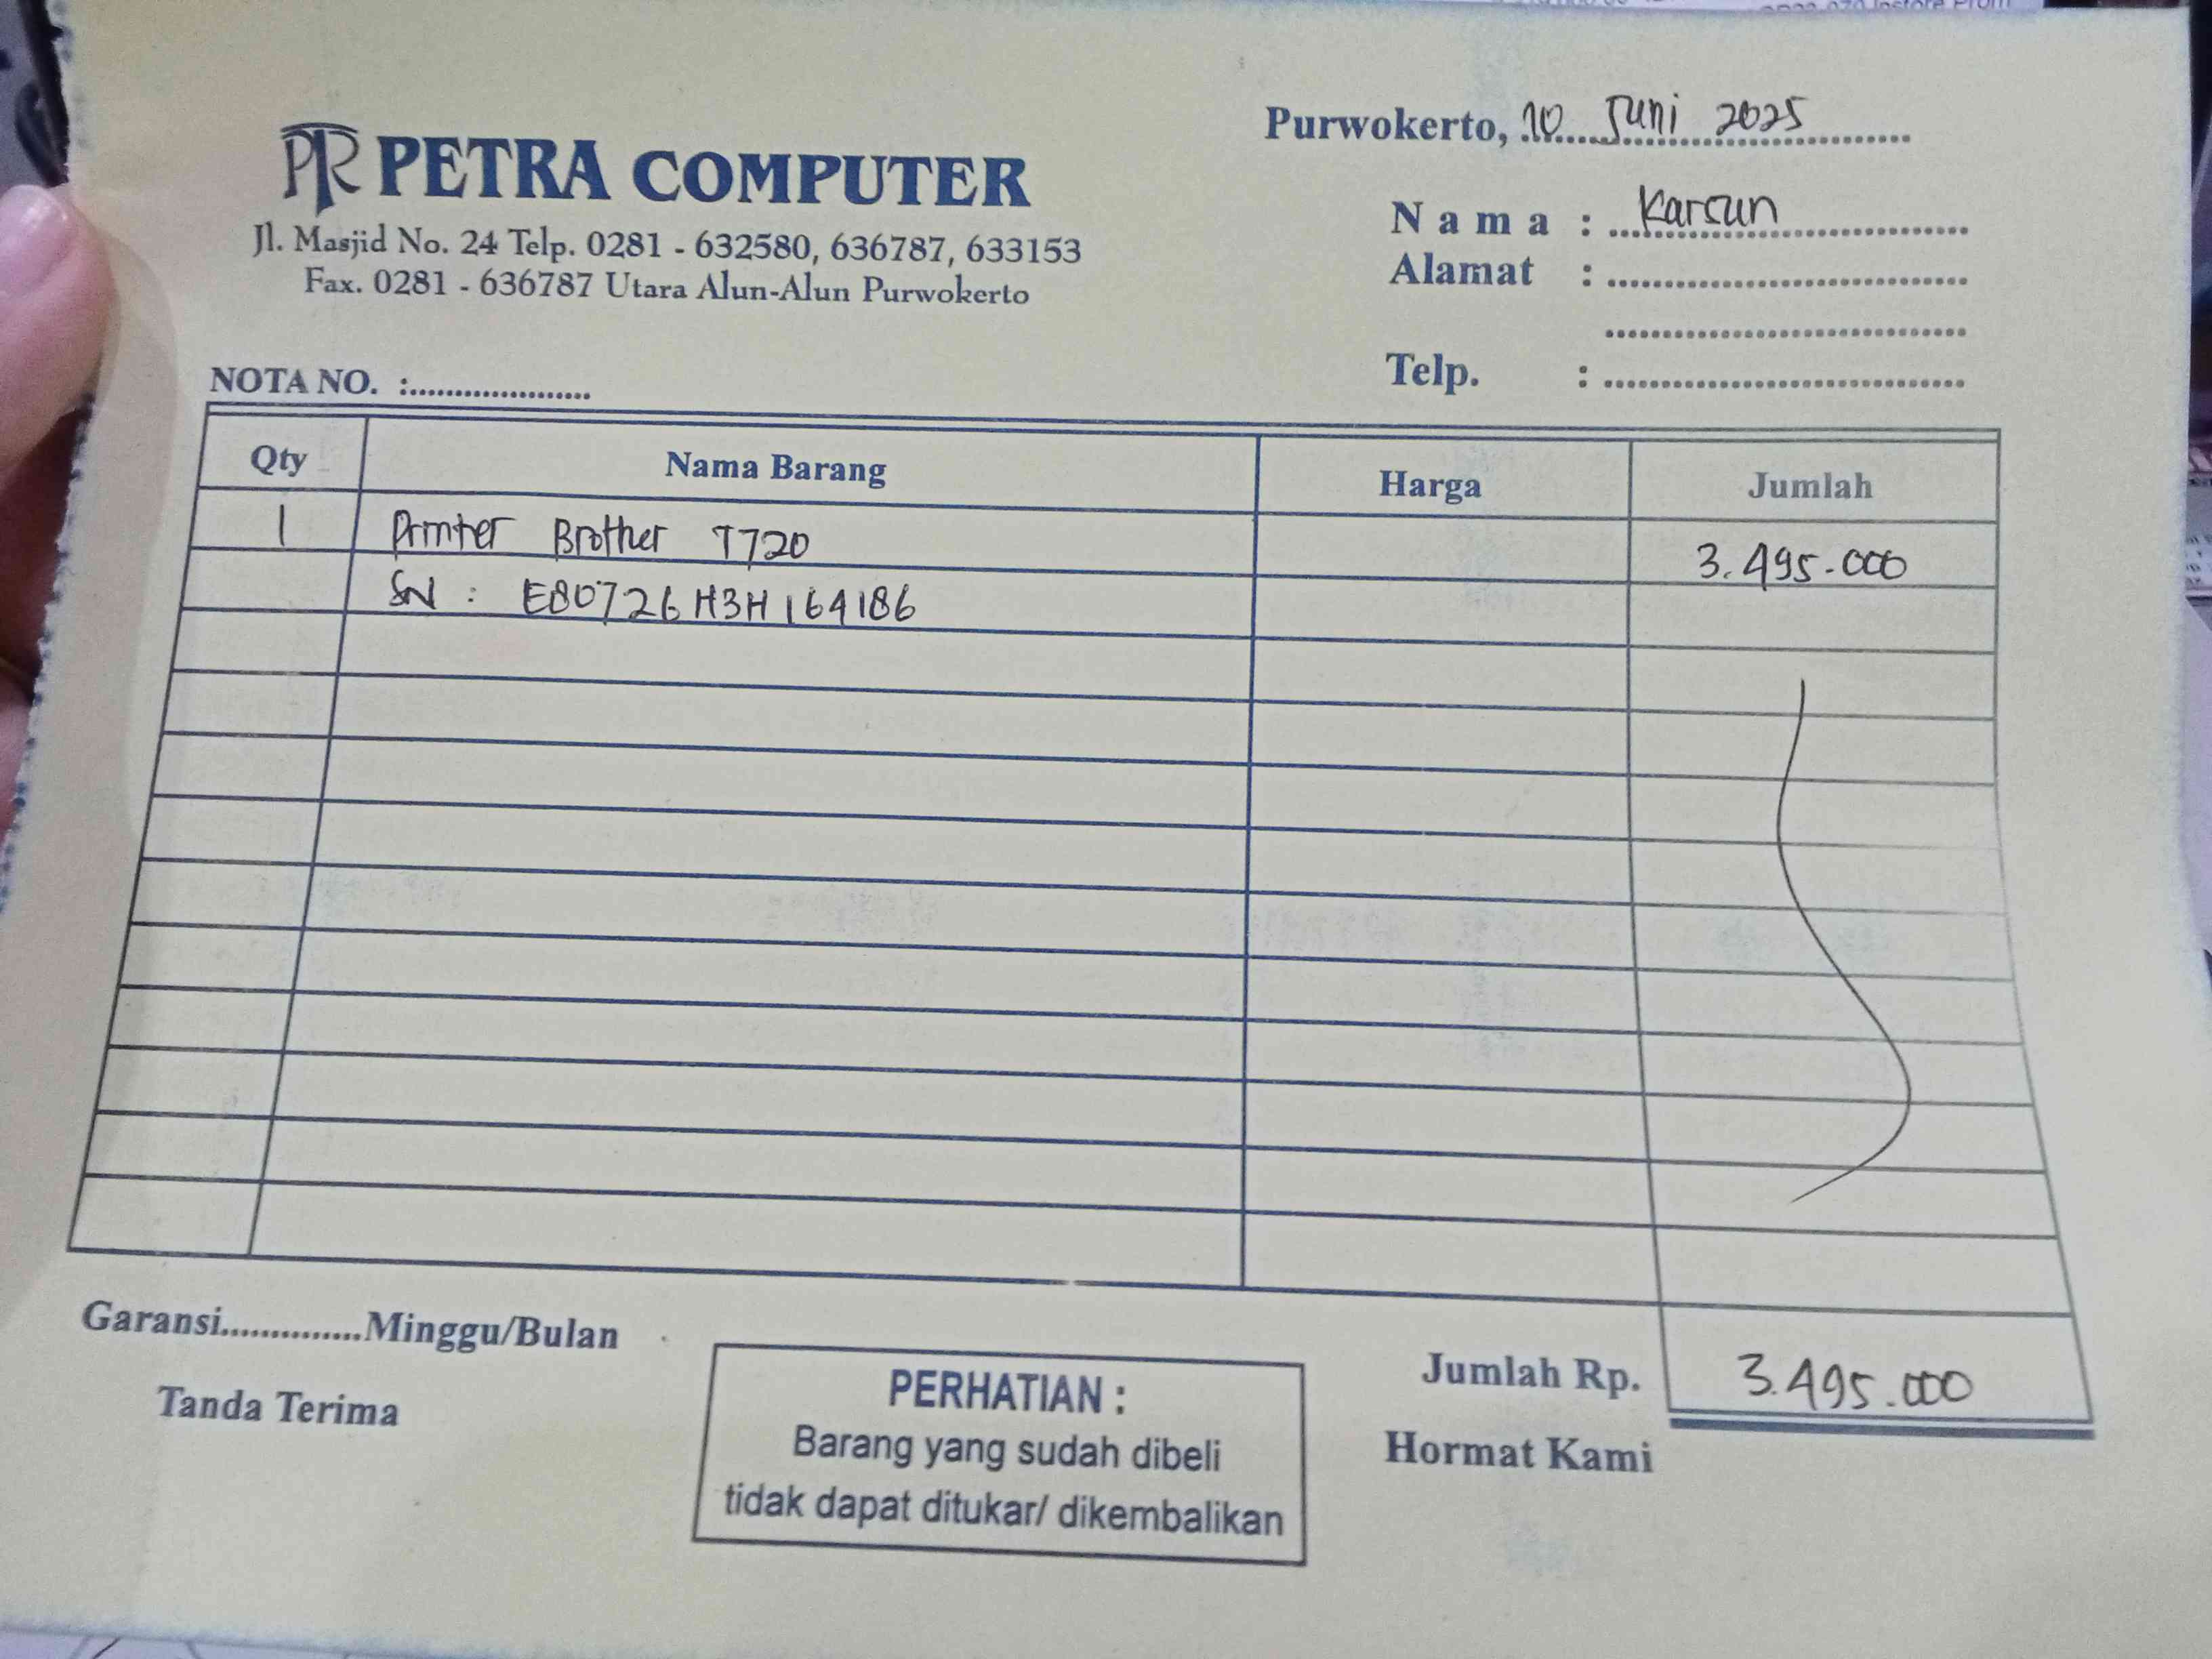 PETRA COMPUTER
Jl. Masjid No. 24 Telp. 0281 - 632580, 636787, 633153
Fax. 0281 - 636787 Utara Alun-Alun Purwokerto
Purwokerto, 10 Juni 2025
Nama : Karsun
Alamat :
Telp. :
NOTA NO. :
Qty Nama Barang Harga Jumlah
1 Printer Brother T720 3.495.000
SN : E80726H3H164186
Garansi..............Minggu/Bulan
Tanda Terima
PERHATIAN :
Barang yang sudah dibeli
tidak dapat ditukar/ dikembalikan
Jumlah Rp. 3.495.000
Hormat Kami